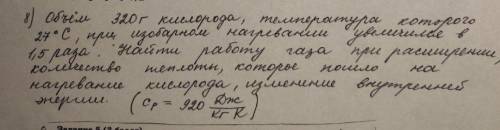 8) Объём 320г кислорода, температура которого
27°С, при изобарном нагревании увеличился в
1,5 раза. Найти работу газа при расширении,
количество теплоты, которое пошло на
нагревание кислорода, изменение внутренней
энергии. (Cp = 920 Дж/кг К)